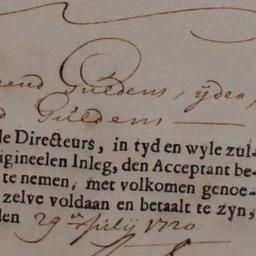 rend Guldens, yder,
d Guldens
le Directeurs, in tyd en wyle zul-
igineelen Inleg, den Acceptant be-
te nemen, met volkomen genoe-
zelve voldaan en betaalt te zyn,
den 29 July 1720